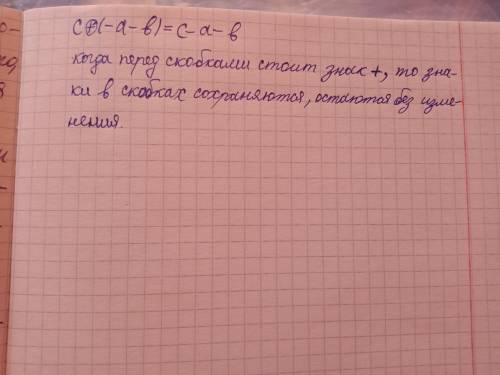 с+(-а-в)=с-а-в
когда перед скобками стоит знак +, то зна-
ки в скобках сохраняются, остаются без изме-
нения.